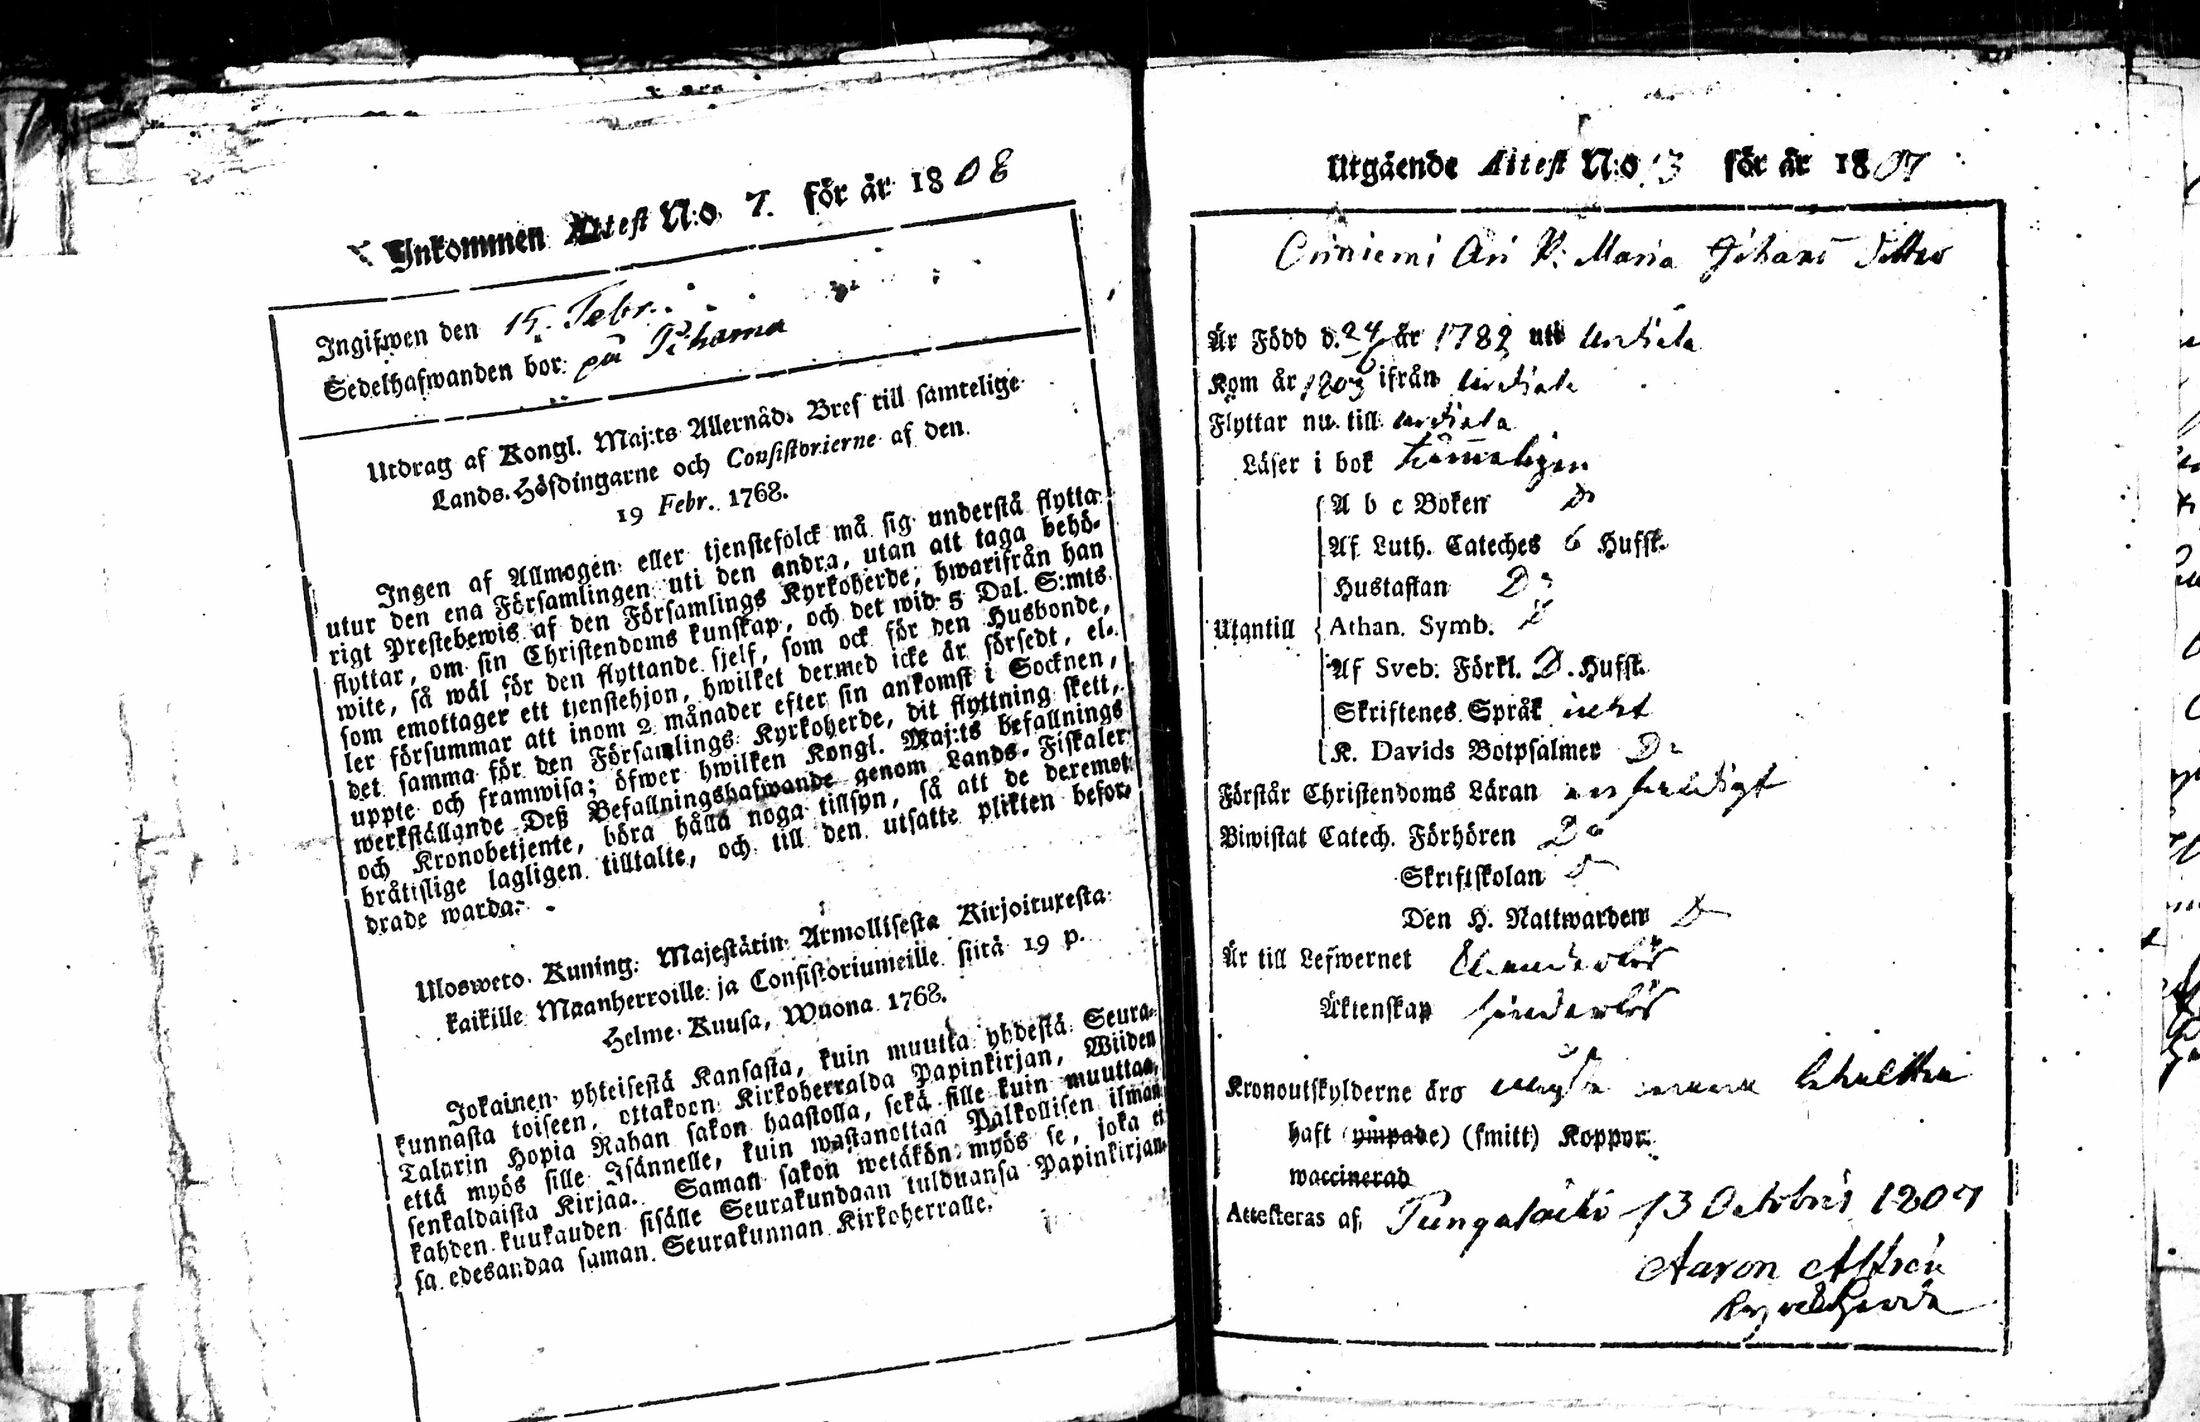 Inkommen Attest N:o 7. för år 1808
Ingifwen den 15. Febr.
Sedelhafwanden bor på Pihama
Utdrag af Kongl. Maj:ts Allernåd. Bref till samtelige
Lands-Höfdingarne och Consistorierne af den
19 Febr. 1768.
Ingen af Allmogen eller tjenstefolck må sig understå flytta
utur den ena Församlingen uti den andra, utan att taga behö-
rigt Prestebewis af den Församlings Kyrkoherde, hwarifrån han
flyttar, om sin Christendoms kunskap, och det wid 5 Dal. S:mts
wite, så wäl för den flyttande sjelf, som ock för den Husbonde,
som emottager ett tjenstehjon, hwilket dermed icke är försedt, el-
ler försummar att inom 2 månader efter sin ankomst i Socknen,
det samma för den Församlings Kyrkoherde, dit flyttning skett,
uppte och framwisa; öfwer hwilken Kongl. Maj:ts befallnings
werkställande Deß Befallningshafwande genom Lands-Fiskaler
och Kronobetjente, böra hålla noga tillsyn, så att de deremot
bråtislige lagligen tilltalte, och till den utsatte plikten befor-
drade warda.
Ulosweto Kuning: Majestätin Armollisesta Kirjoituxesta
kaikille Maanherroille ja Consistoriumeille siitä 19 p.
Helme-Kuusa, Wuona 1768.
Jokainen yhteisestä Kansasta, kuin muutta yhdestä Seura-
kunnasta toiseen, ottakoon Kirkoherralda Papinkirjan, Wiiden
Talarin Hopia Rahan sakon haastolla, sekä sille kuin muuttaa,
että myös sille Isännelle, kuin wastanottaa Palkollisen ilman
senkaldaista Kirjaa. Saman sakon wetäkön myös se, joka ei
kahden kuukauden sisälle Seurakundaan tulduansa Papinkirjan-
sa edesandaa saman Seurakunnan Kirkoherralle.
Utgående Attest N:o 13 för år 1807
Maria Johans Dotter
Är Född d. 24/6 år 1782 uti Urdiala
Kom år 1803 ifrån Urdiala
Flyttar nu till Urdiala
Läser i bok
A b c Boken D
Af Luth. Cateches 6 Hufst.
Hustaflan D:o
Utantill
Athan. Symb. D
Af Sveb. Förkl. D. Hufst.
Skriftenes Språk intet
K. Davids Botpsalmer D:o
Förstår Christendoms Läran
Biwistat Catech. Förhören D:o
Skriftskolan D
Den H. Nattwarden D
Är till Lefwernet
Äktenskap hinderlös
Kronoutskylderne äro
haft (ympade) (smitt) Koppor
waccinerad
Attesteras af, Pungalaitio 13 Octobris 1807
Aaron
Kyrckoherde